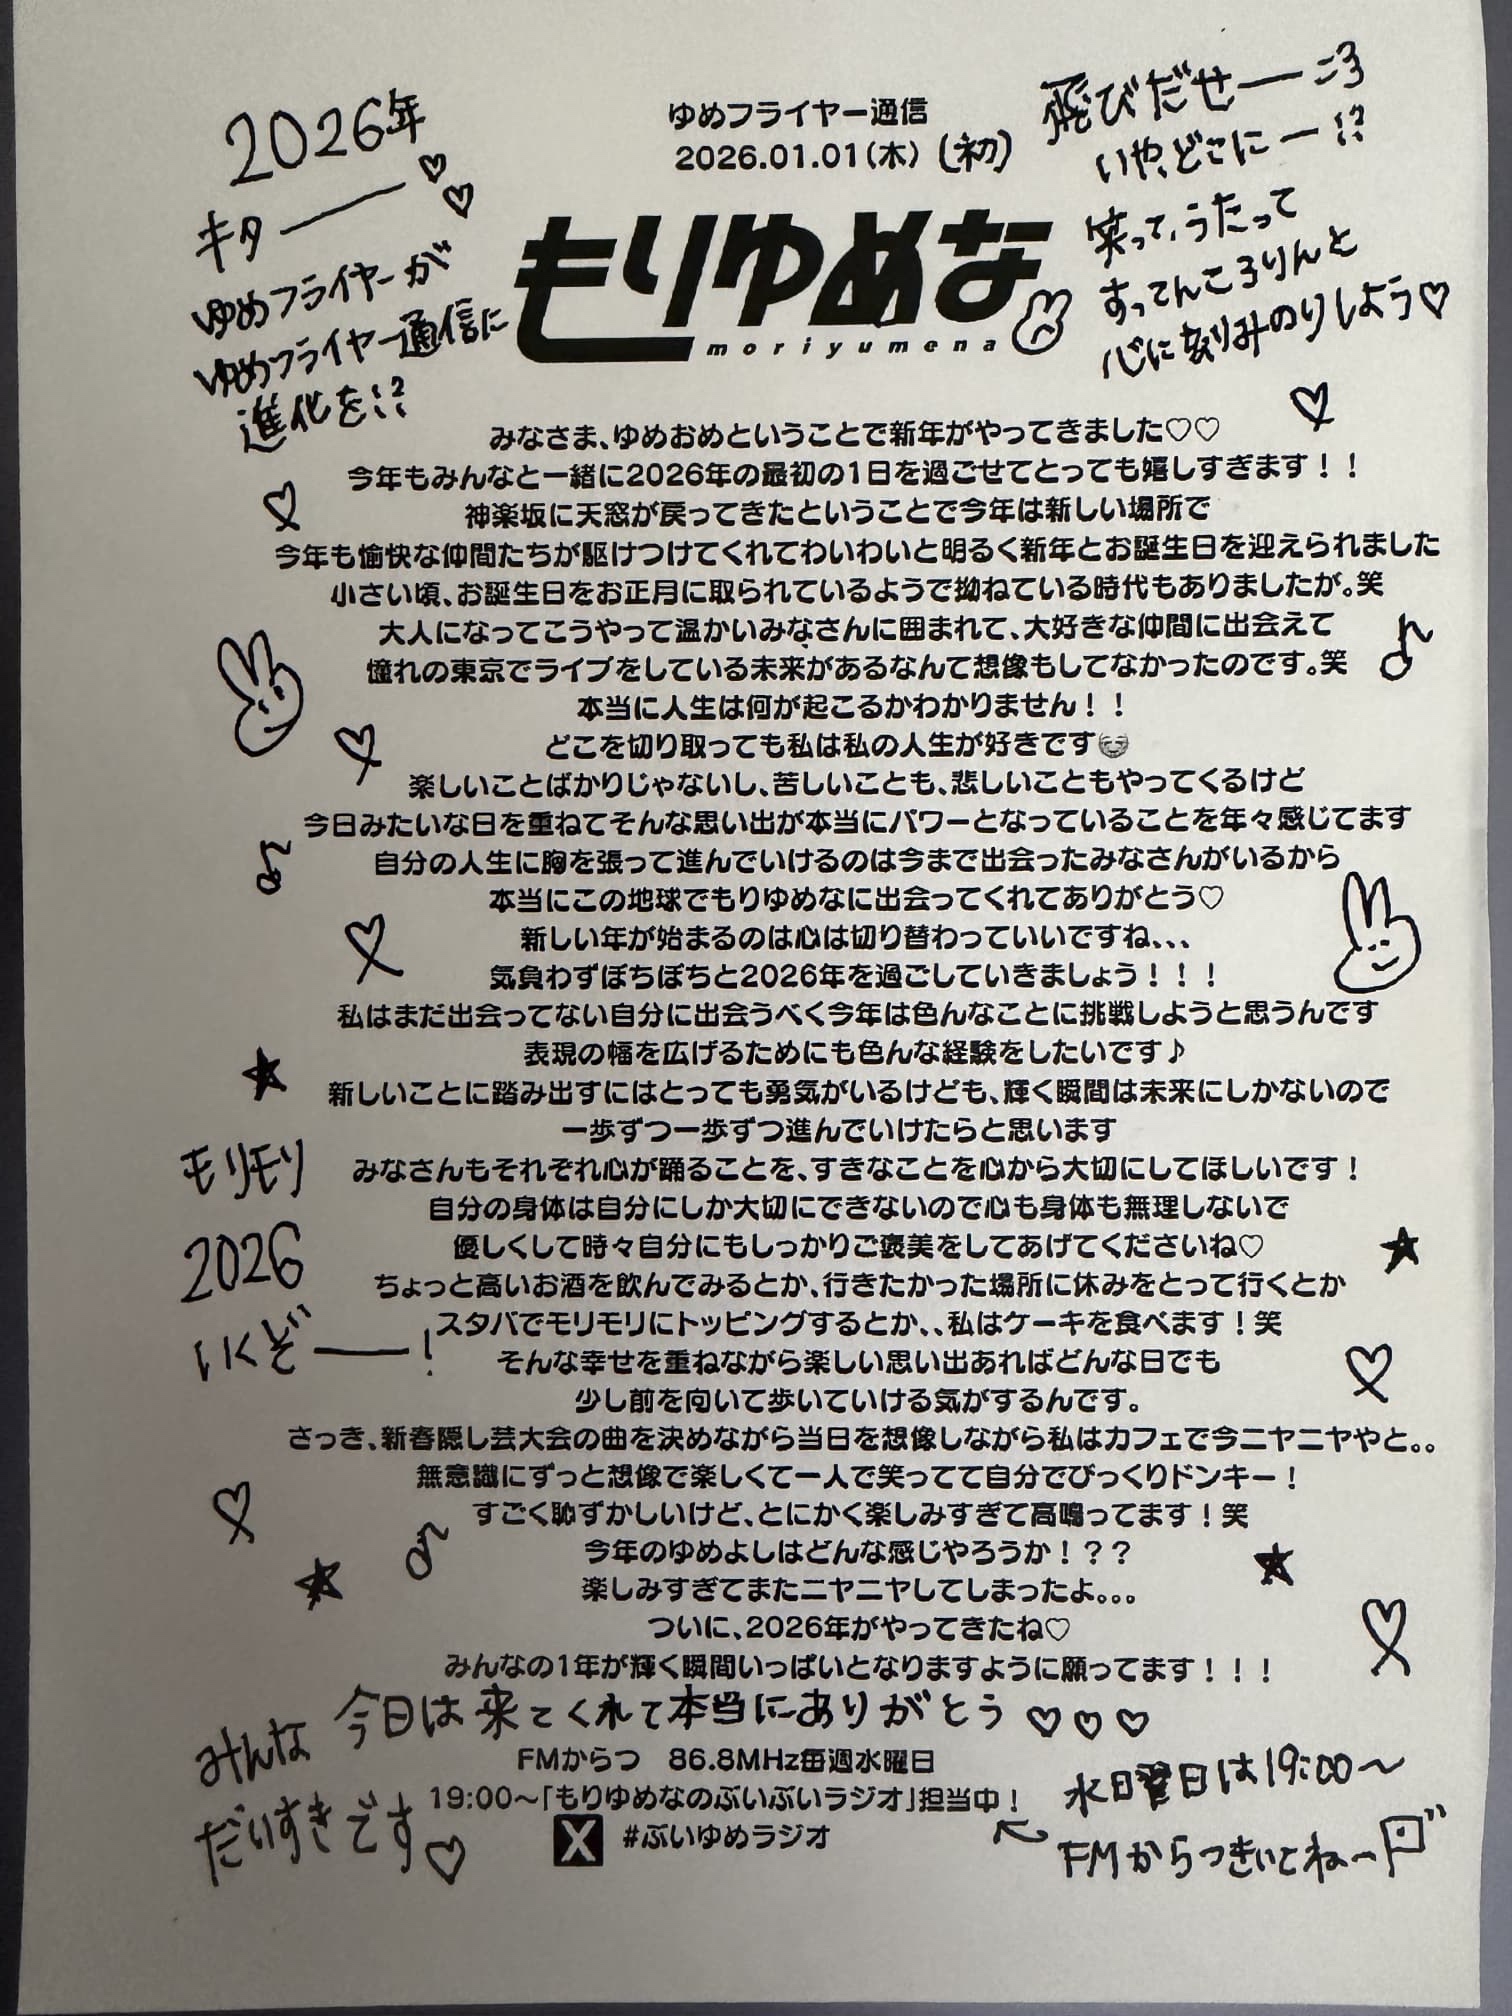 2026年
キター♡♡
ゆめフライヤーが
ゆめフライヤー通信に
進化を!?
ゆめフライヤー通信
2026.01.01(木) (初)
飛びだせーニ3
いや、どこにー!?
笑って、うたって
すってんころりんと
心に刻みのりしよう♡
もりゆめな
moriyumena
みなさま、ゆめおめということで新年がやってきました♡♡
今年もみんなと一緒に2026年の最初の1日を過ごせてとっても嬉しすぎます!!
神楽坂に天窓が戻ってきたということで今年は新しい場所で
今年も愉快な仲間たちが駆けつけてくれてわいわいと明るく新年とお誕生日を迎えられました
小さい頃、お誕生日をお正月に取られているようで拗ねている時代もありましたが。笑
大人になってこうやって温かいみなさんに囲まれて、大好きな仲間に出会えて
憧れの東京でライブをしている未来があるなんて想像もしてなかったのです。笑
本当に人生は何が起こるかわかりません!!
どこを切り取っても私は私の人生が好きです
楽しいことばかりじゃないし、苦しいことも、悲しいこともやってくるけど
今日みたいな日を重ねてそんな思い出が本当にパワーとなっていることを年々感じてます
自分の人生に胸を張って進んでいけるのは今まで出会ったみなさんがいるから
本当にこの地球でもりゆめなに出会ってくれてありがとう♡
新しい年が始まるのは心は切り替わっていいですね、、、
気負わずぼちぼちと2026年を過ごしていきましょう!!!
私はまだ出会ってない自分に出会うべく今年は色んなことに挑戦しようと思うんです
表現の幅を広げるためにも色んな経験をしたいです♪
新しいことに踏み出すにはとっても勇気がいるけども、輝く瞬間は未来にしかないので
一歩ずつ一歩ずつ進んでいけたらと思います
みなさんもそれぞれ心が踊ることを、すきなことを心から大切にしてほしいです!
自分の身体は自分にしか大切にできないので心も身体も無理しないで
優しくして時々自分にもしっかりご褒美をしてあげてくださいね♡
ちょっと高いお酒を飲んでみるとか、行きたかった場所に休みをとって行くとか
スタバでモリモリにトッピングするとか、、私はケーキを食べます!笑
そんな幸せを重ねながら楽しい思い出あればどんな日でも
少し前を向いて歩いていける気がするんです。
さっき、新春隠し芸大会の曲を決めながら当日を想像しながら私はカフェで今ニヤニヤやと。。
無意識にずっと想像で楽しくて一人で笑ってて自分でびっくりドンキー!
すごく恥ずかしいけど、とにかく楽しみすぎて高鳴ってます!笑
今年のゆめよしはどんな感じやろうか!??
楽しみすぎてまたニヤニヤしてしまったよ。。。
ついに、2026年がやってきたね♡
みんなの1年が輝く瞬間いっぱいとなりますように願ってます!!!
モリモリ
2026
いくぞー!
みんな 今日は来てくれて本当にありがとう♡♡♡
だいすきです♡
FMからつ 86.8MHz毎週水曜日
19:00〜「もりゆめなのぶいぶいラジオ」担当中!
X #ぶいゆめラジオ
水曜日は19:00〜
FMからつきいてねー